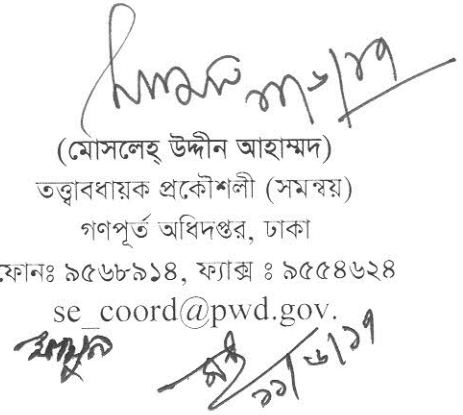 ১১/৬/১৭
(মোসলেহ্ উদ্দীন আহাম্মদ)
তত্ত্বাবধায়ক প্রকৌশলী (সমন্বয়)
গণপূর্ত অধিদপ্তর, ঢাকা
ফোনঃ ৯৫৬৮৯১৪, ফ্যাক্স ঃ ৯৫৫৪৬২৪
se_coord@pwd.gov.
১১/৬/১৭